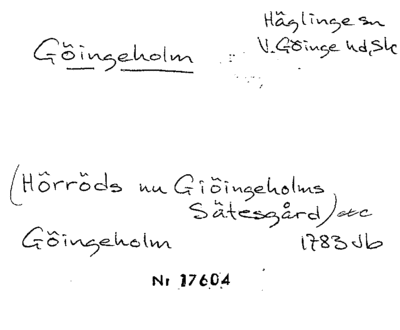 Göingeholm
Häglinge sn
V. Göinge hd, Sk
(Hörröds nu Giöingeholms
Sätesgård) etc
Göingeholm 1783 Jb
Nr 17604